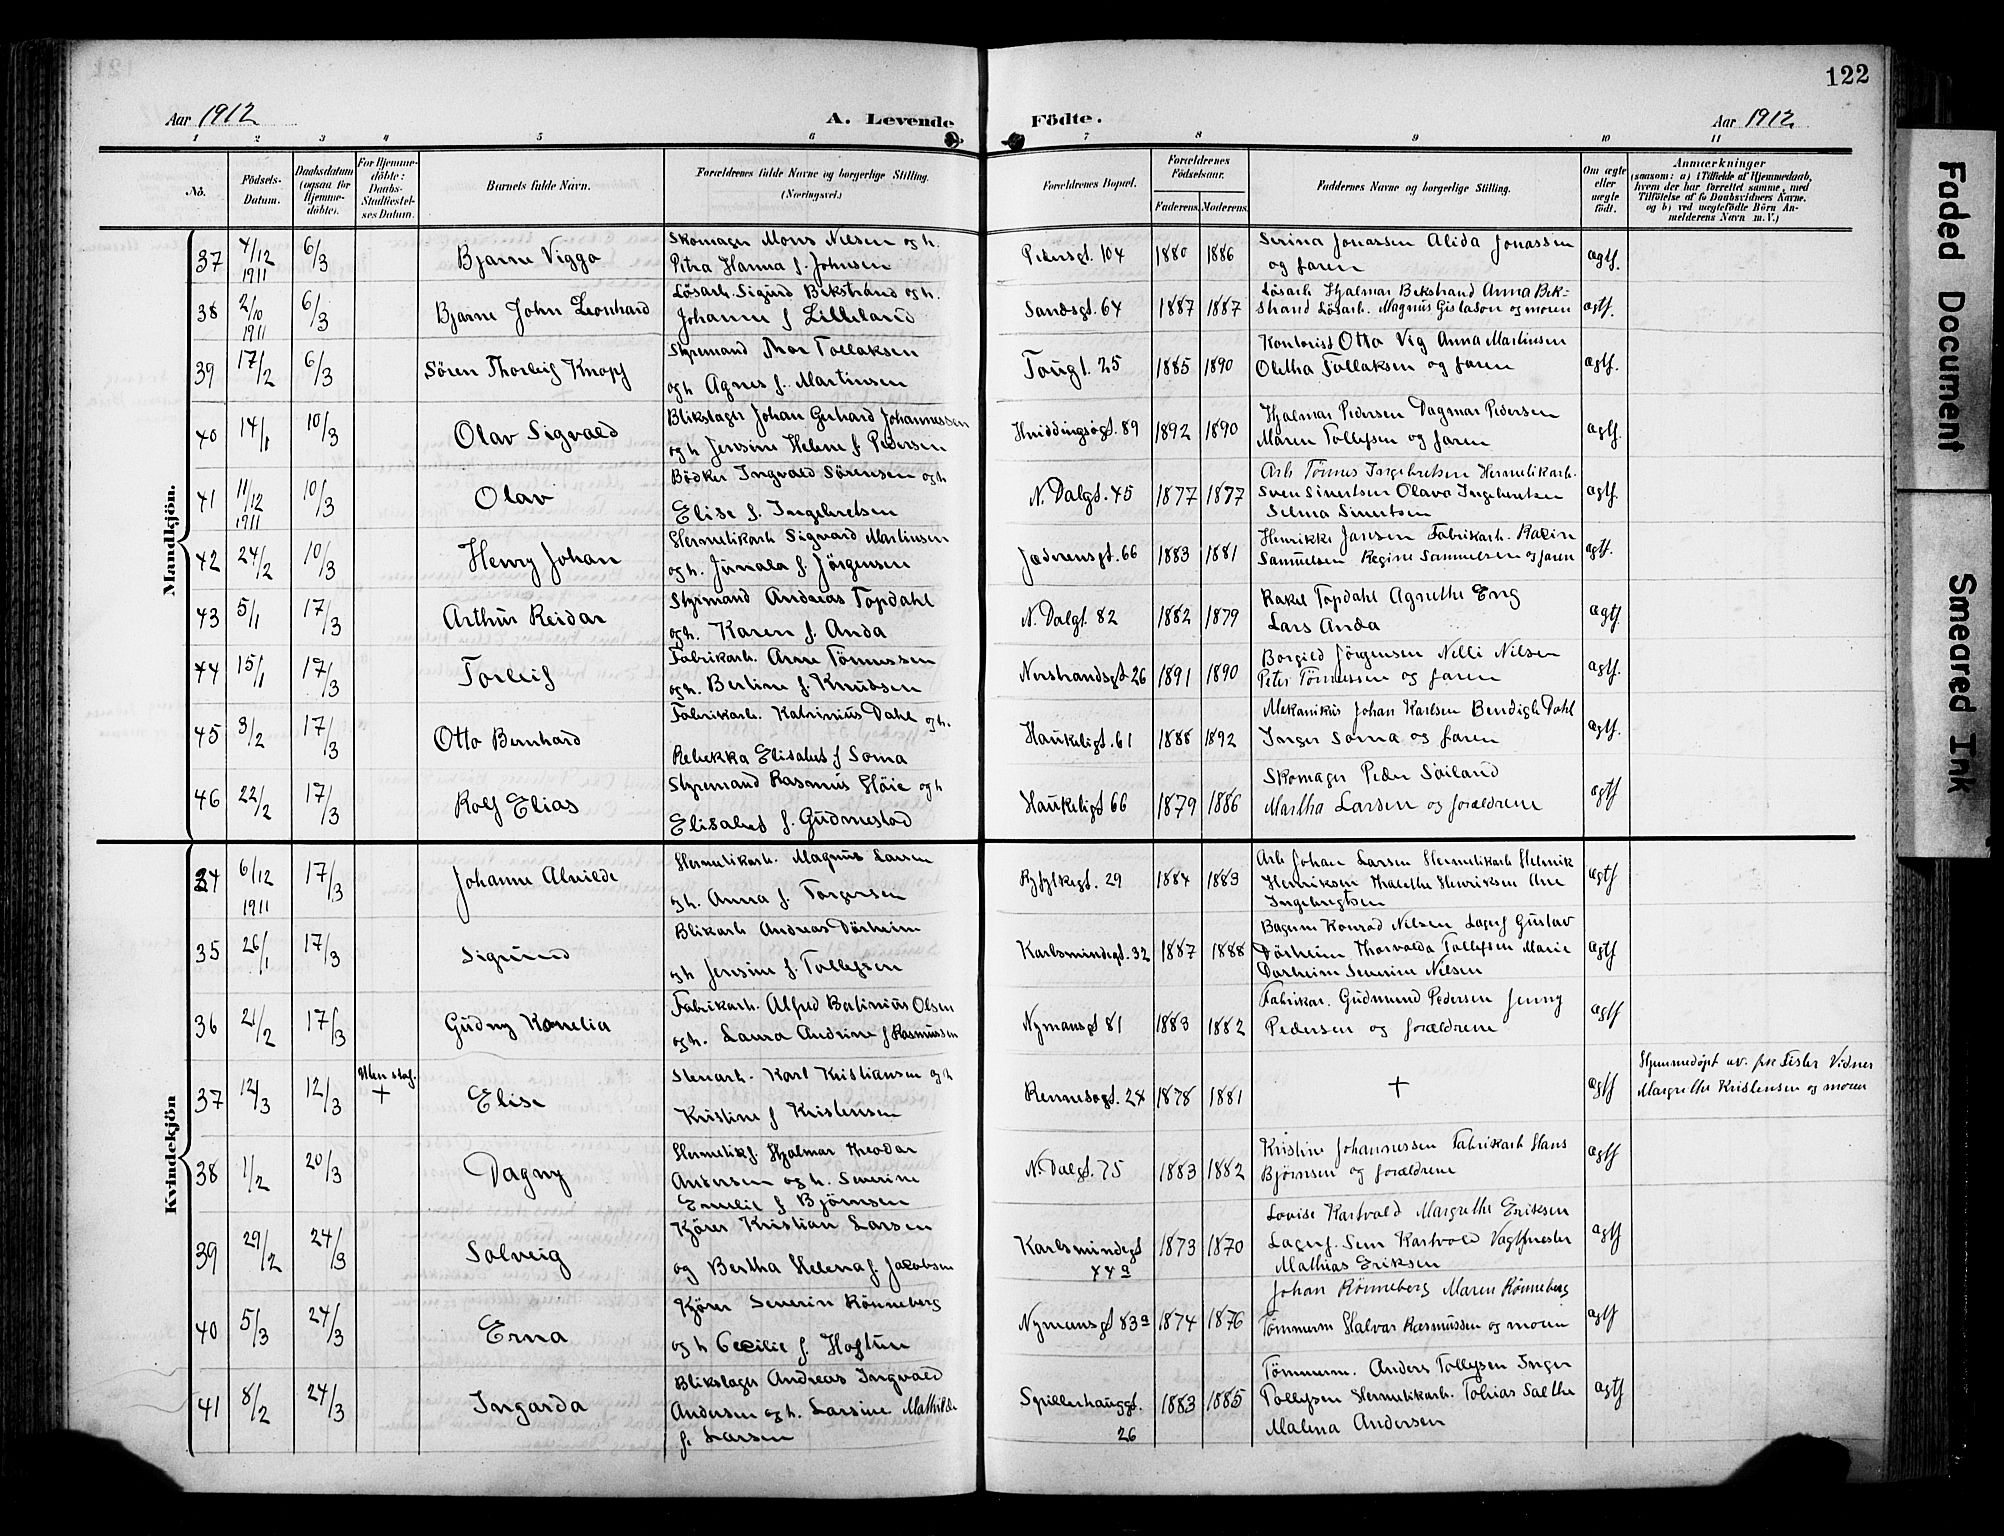 121
122
Aar 1912
A. Levende
Födte.
Aar 1912
1 2 3 4 5 6 7 8 9 10 11
No.
Födsels-
Datum.
Daabsdatum
(ogsaa for
Hjemme-
döbte).
For Hjemme-
döbte:
Daabs-
Stadfæstel-
ses Datum.
Barnets fulde Navn.
Forældrenes fulde Navne og borgerlige Stilling.
(Næringsvei.)
Forældrenes Bopæl.
Forældrenes
Födselsaar.
Faderens. Moderens.
Faddernes Navne og borgerlige Stilling.
Om ægte
eller
uægte
födt.
Anmærkninger
(saasom: a) i Tilfælde af Hjemmedaab,
hvem der har forrettet samme, med
Tilföielse af to Daabsvidners Navne.
og b) ved uægtefödte Börn An-
melderens Navn m. V.)
Mandkjön.
37 4/12 1911 6/3 Bjarne Viggo
Skomager Mons Nilsen og h.
Petra Hanna f. Johnsen
Pedersgt. 104 1880 1886
Serina Jonassen Alida Jonassen
og faren
ægtf.
38 2/10 1911 6/3 Bjarne John Leonhard
Lösarb. Sigurd Bekstrand og h.
Johanne f Lilleland
Sandsgt. 64 1887 1887
Lösarb Hjalmar Bekstrand Anna Bek-
strand Lösarb. Magnus Gislason og moren
ægtf.
39 17/2 6/3 Sören Thorleif Knopf
Styrmand Thor Tollaksen
og h Agnes f. Martinsen
Tougt. 25 1885 1890
Kontorist Otto Vig Anna Martinsen
Oletha Tollaksen og faren
ægtf.
40 14/1 10/3 Olav Sigvald
Blikslager Johan Gerhard Johannessen
og h Jensine Helene f. Pedersen
Hviddingsögt. 89 1892 1890
Hjalmar Pedersen Dagmar Pedersen
Maren Tollefsen og faren
ægtf.
41 11/12 1911 10/3 Olav
Bödker Ingvald Sörensen og h
Elise f. Ingebretsen
N. Dalgt. 45 1877 1877
Arb Tönnes Ingebretsen Hermetikarb.
Sven Sivertsen Olava Ingebretsen
Selma Sivertsen
ægtf.
42 24/2 10/3 Henry Johan
Hermetikarb Sigvard Martinsen
og h. Jirnala f. Jörgensen
Jæderensgt. 66 1883 1881
Henrikke Jansen Fabrikarb.
Samuelsen Regine Samuelsen og faren
ægtf.
43 5/1 17/3 Arthur Reidar
Styrmand Andreas Topdahl
og h. Karen f. Anda
N. Dalgt. 82 1882 1879
Rakel Topdahl Agnethe Eng
Lars Anda
ægtf
44 15/1 17/3 Torleif
Fabrikarb. Arne Tönnessen
og h. Bertine f. Knudsen
Norstrandsgt 26 1891 1890
Borgild Jörgensen Nelli Nilsen
Peter Tönnessen og faren
ægtf.
45 3/2 17/3 Otto Bernhard
Fabrikarb. Katrinius Dahl og h.
Rebekka Elisabet f Soma
Haukeligt. 61 1888 1892
Mekanikus Johan Karlsen Bendigte Dahl
Inger Soma og faren
ægtf.
46 22/2 17/3 Rolf Elias
Styrmand Rasmus Höie og h
Elisabet f. Gudmestad
Haukeligt 66 1879 1886
Skomager Peder Söiland
Martha Larsen og forældrene
ægtf
Kvindekjön
34 6/12 1911 17/3 Johanne Alvilde
Hermetikarb. Magnus Larsen
og h. Anna f. Torgersen
Ryfylkegt. 29 1884 1883
Arb Johan Larsen Hermetikarb Helmik
Henriksen Thalethe Henriksen Ane
Ingebregtsen
ægtf
35 26/1 17/3 Sigrund
Blikarb Andreas Dörheim
og h Jensine f. Tollefsen
Karlsmindegt. 32 1887 1888
Bagerm Konrad Nilsen Lagerf Gustav
Dörheim Thorvalda Tollefsen Marie
Dørheim Severine Nilsen
ægtf
36 21/2 17/3 Gudny Kornelia
Fabrikarb. Alfred Batinius Olsen
og h. Laura Andrine f Rasmussen
Nymansgt 81 1883 1882
Fabrikar. Gudmund Pedersen Jenny
Pedersen og forældrene
ægtf
37 12/3 12/3 Uten staf. + Elise
Stenarb. Karl Kristiansen og h
Kristine f Kristensen
Rennesøgt. 24 1878 1881
+
ægtf
Hjemmedøpt av. frk Sister Vidner
Margrethe Kristensen og moren
38 1/2 20/3 Dagny
Hermetikf. Hjalmar Theodor
Andersen og h. Severine
Emelie f Bjørnsen
N. Dalgt. 75 1883 1882
Kristine Johannessen Fabrikarb Hans
Bjørnsen og forældrene
ægtf
39 29/2 24/3 Solveig
Kjører Kristian Larsen
og Bertha Helena f. Jacobsen
Karlsmindegt
44a
1873 1870
Lovise Kartvold Margrethe Eriksen
Lagerf. Sem Kartvold Vagtmester
Mathias Eriksen
ægtf
40 5/3 24/3 Erna
Kjører Severin Rönneberg
og h Cecilie f. Hoftun
Nymansgt 83a 1874 1876
Johan Rönneberg Maren Rönneberg
Tömmerm Halvar Rasmussen og moren
ægtf
41 8/2 24/3 Ingarda
Blikslager Andreas Ingvald
Andersen og h. Larsine Mathilde
f. Larsen
Spillerhauggt.
26
1883 1885
Tömmerm. Anders Tollefsen Inger
Tollefsen Hermetikarb. Tobias Salthe
Malena Andersen
ægtf
Faded Document
Smeared Ink